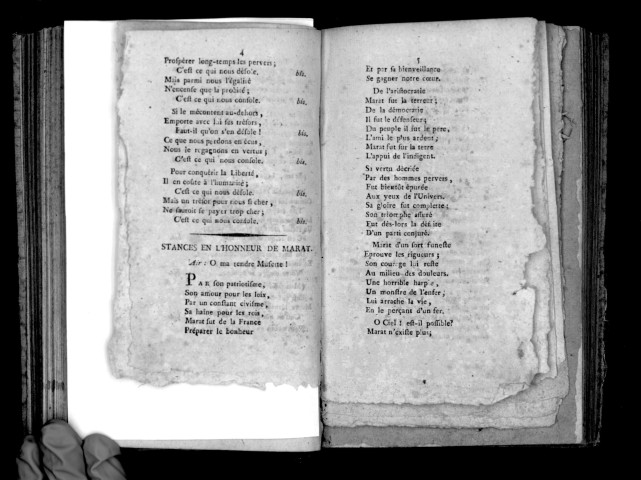 4
Prospérer long-temps les pervers ;
C'est ce qui nous désole. bis.
Mais parmi nous l'égalité
N'encense que la probité ;
C'est ce qui nous console. bis.
Si le mécontent au-dehors ,
Emporte avec lui ses trésors ,
Faut-il qu'on s'en désole ! bis.
Ce que nous perdons en écus ,
Nous le regagnons en vertus ;
C'est ce qui nous console. bis.
Pour conquérir la Liberté ,
Il en coûte à l'humanité ;
C'est ce qui nous désole. bis.
Mais un trésor pour nous si cher ,
Ne sauroit se payer trop cher ;
C'est ce qui nous console. bis.
STANCES EN L'HONNEUR DE MARAT.
Air : O ma tendre Musette !
PAR son patriotisme,
Son amour pour les loix,
Par un constant civisme,
Sa haîne pour les rois,
Marat sut de la France
Préparer le bonheur
5
Et par sa bienveillance
Se gagner notre cœur.
De l'aristocratie
Marat fut la terreur ;
De la démocratie
Il fut le défenseur ;
Du peuple il fut le pere,
L'ami le plus ardent ;
Marat fut sur la terre
L'appui de l'indigent.
Sa vertu décriée
Par des hommes pervers ,
Fut bientôt épurée
Aux yeux de l'Univers.
Sa gloire fut complette ;
Son triomphe assuré
Eut dès-lors la défaite
D'un parti conjuré.
Marat d'un sort funeste
Eprouve les rigueurs ;
Son courage lui reste
Au milieu des douleurs.
Une horrible harpie ,
Un monstre de l'enfer ,
Lui arrache la vie ,
En le perçant d'un fer.
O Ciel ! est-il possible?
Marat n'existe plus;